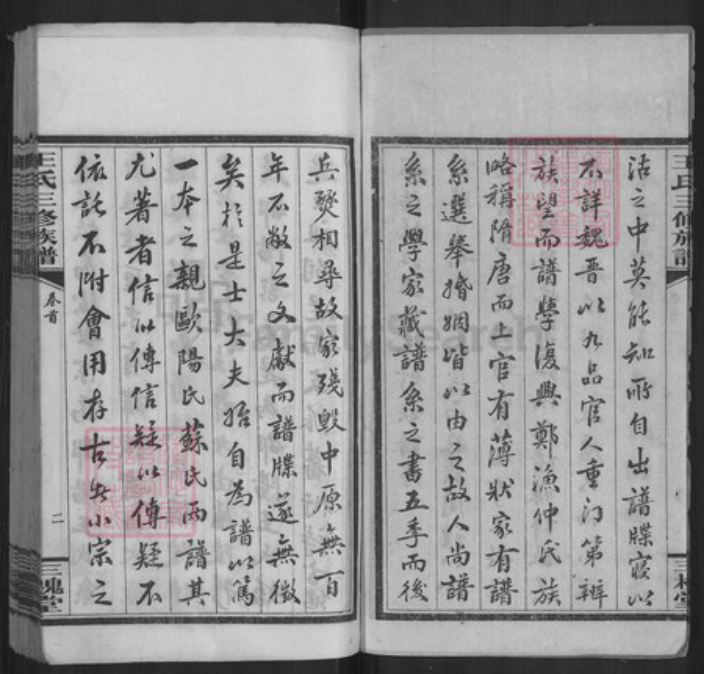 沽之中莫能知所自出譜牒寖以
不詳魏晋以九品官人重门第辨
族望而譜學復興鄭漁仲氏族
略稱隋唐而上官有薄狀家有譜
系選舉婚姻皆以由之故人尚譜
系之學家藏譜系之書五季而後
兵燹相尋故家殘毁中原無百
年不敝之文獻而譜牒遂無徵
矣於是士大夫始自為譜以篤
一本之親歐陽氏蘇氏兩譜其
尤著者信以傳信疑以傳疑不
依託不附會用存古先小宗之
王氏三修族譜
卷首
二
三槐堂